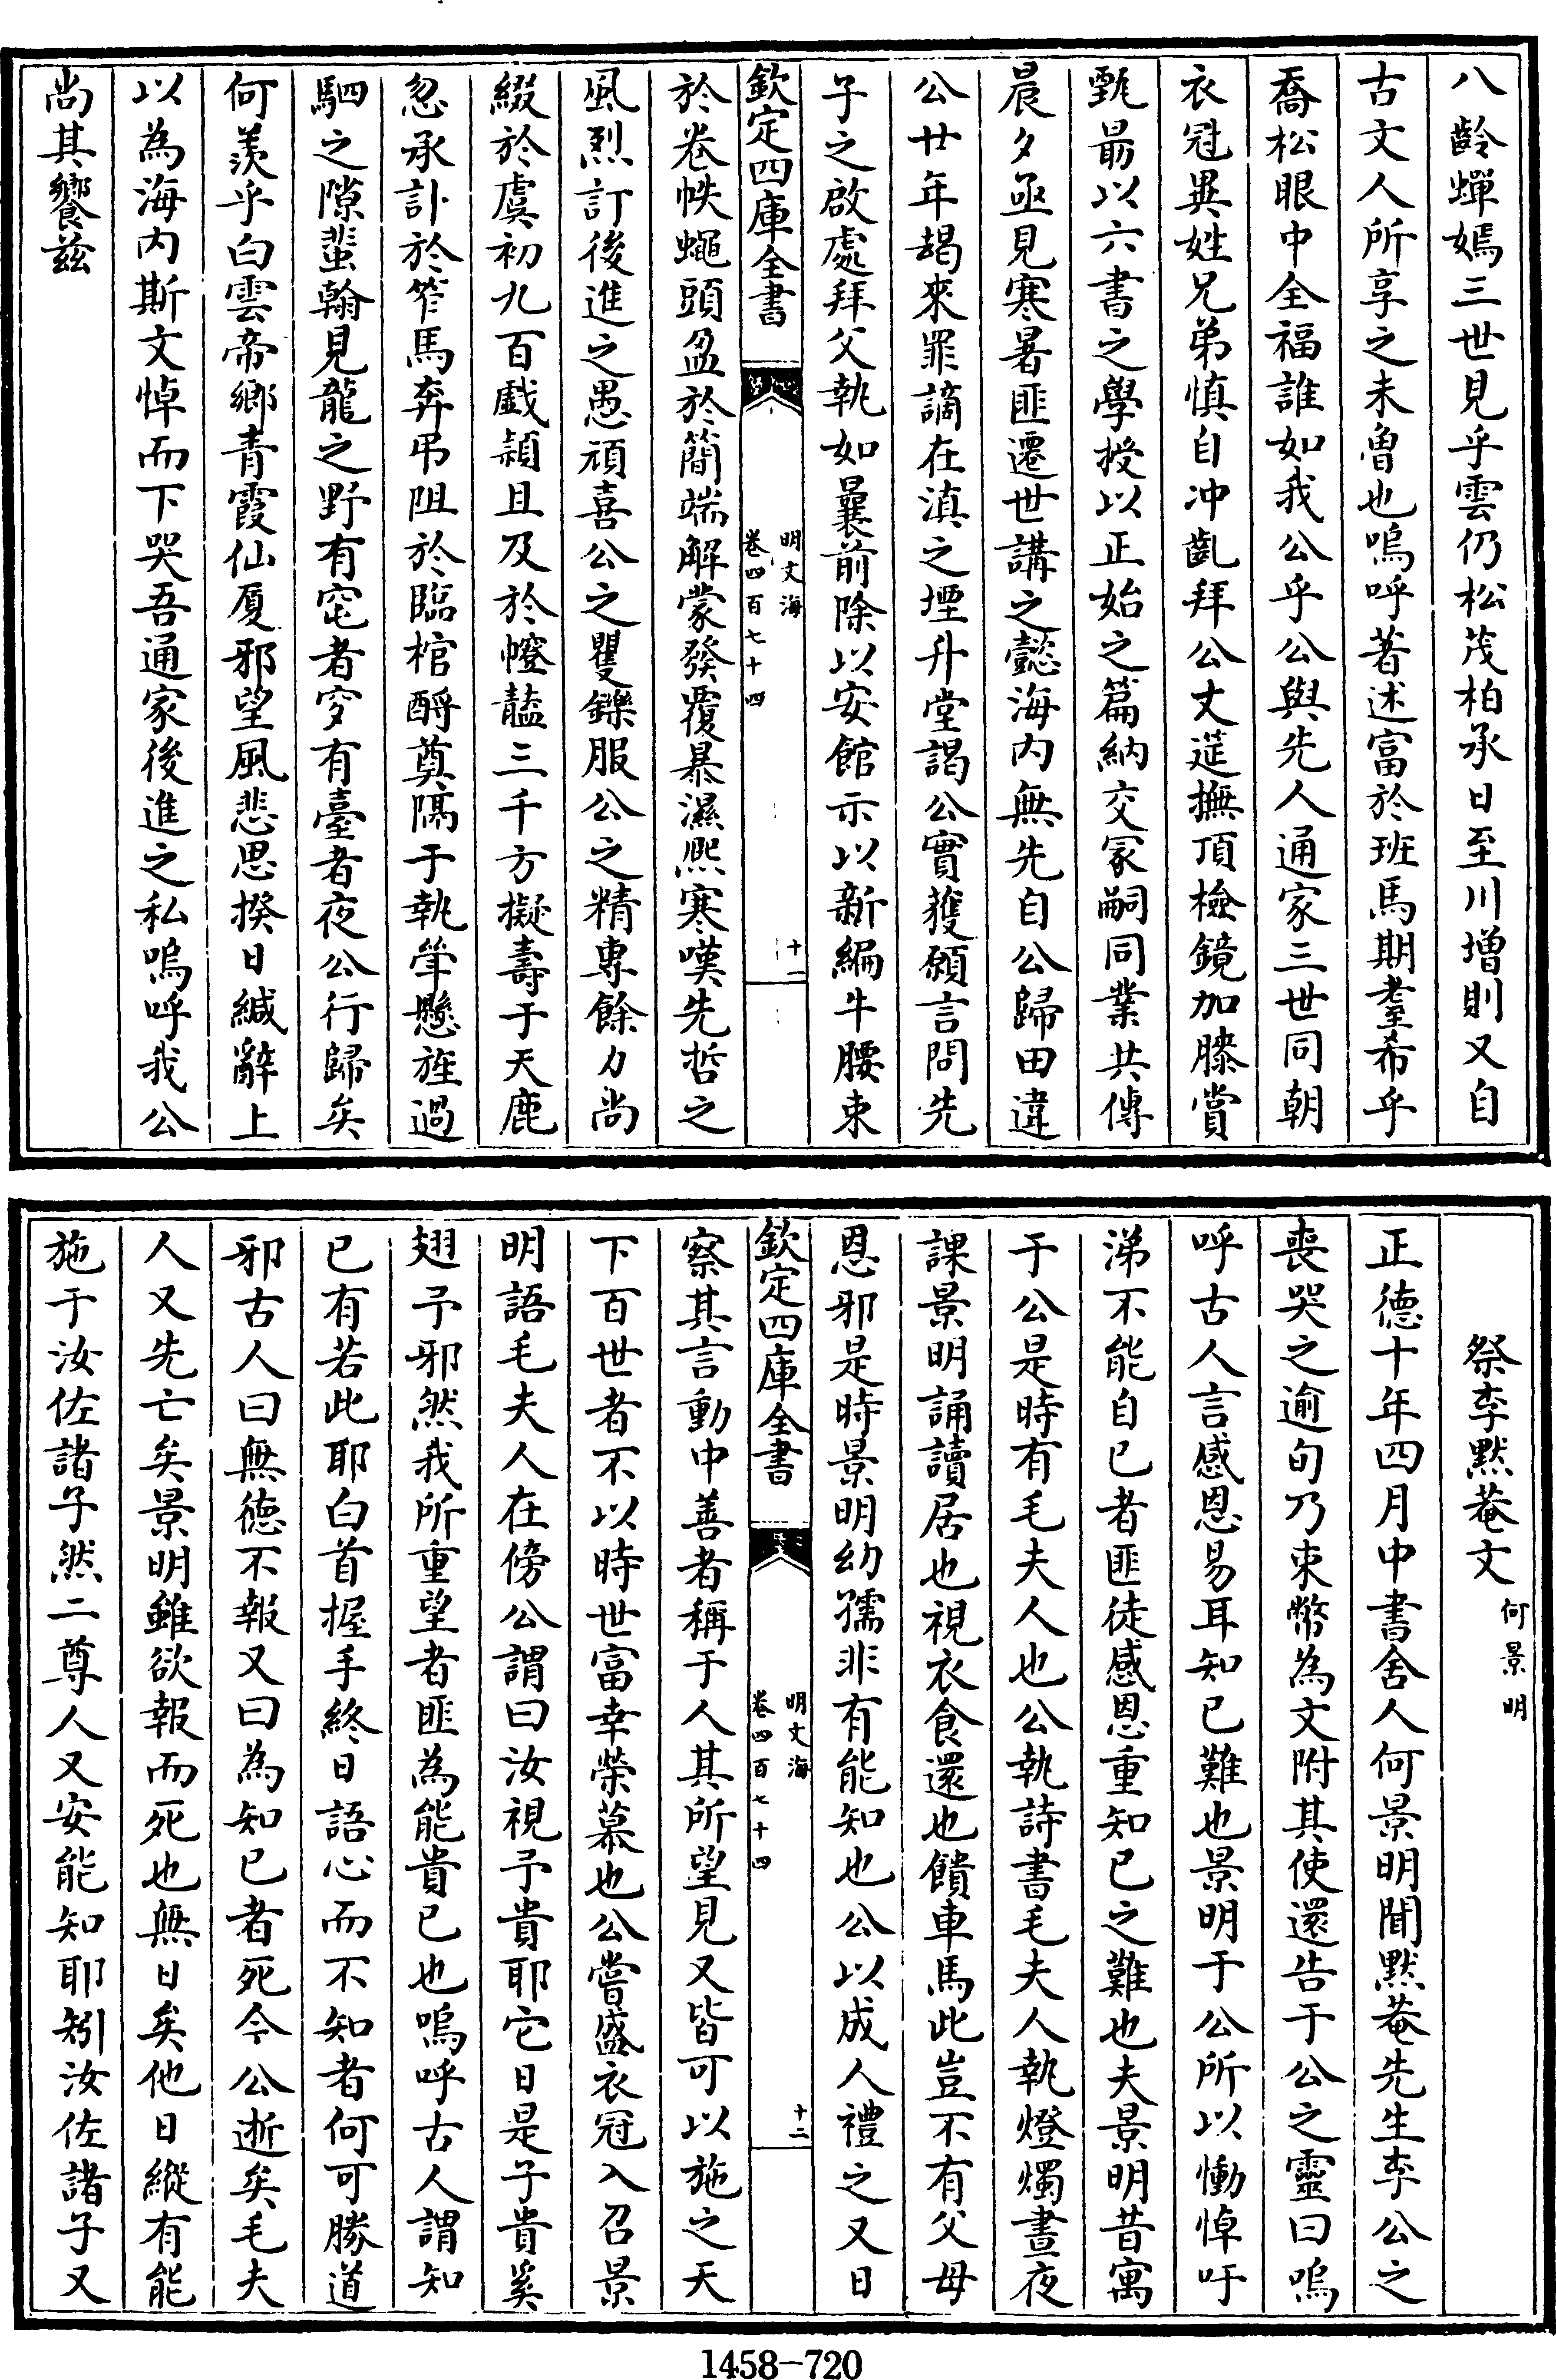 八齡蟬嫣三世見乎雲仍松茂柏承日至川增則又自
古文人所享之未曾也嗚呼著述富於班馬期耋希乎
喬松眼中全福誰如我公乎公與先人通家三世同朝
衣冠異姓兄弟慎自沖齓拜公丈莚撫頂檢鏡加膝賞
甄最以六書之學授以正始之篇納交冢嗣同業共傳
晨夕亟見寒暑匪遷世講之懿海內無先自公歸田違
公廿年朅來罪謫在滇之堙升堂謁公實獲願言問先
子之啟處拜父執如曩前除以安館示以新編牛腰束
欽定四庫全書
明文海
卷四百七十四
十一
於卷帙蠅頭盈於簡端解蒙發覆暴濕熙寒嘆先哲之
風烈訂後進之愚頑喜公之矍鑠服公之精專餘力尚
綴於虞初九百戲顈且及於幰韽三千方擬壽于天鹿
忽承訃於笮馬奔弔阻於臨棺酹奠隔于執紼懸旌過
駟之隙蜚翰見龍之野有窀者穸有臺者夜公行歸矣
何羨乎白雲帝鄉青霞仙厦邪望風悲思揆日緘辭上
以為海內斯文悼而下哭吾通家後進之私嗚呼我公
尚其饗茲
祭李默菴文
何景明
正德十年四月中書舍人何景明聞默菴先生李公之
喪哭之逾旬乃束幣為文附其使還告于公之靈曰嗚
呼古人言感恩易耳知已難也景明于公所以慟悼吁
涕不能自已者匪徒感恩重知已之難也夫景明昔寓
于公是時有毛夫人也公執詩書毛夫人執燈燭晝夜
課景明誦讀居也視衣食還也饋車馬此豈不有父母
恩邪是時景明幼孺非有能知也公以成人禮之又日
欽定四庫全書
明文海
卷四百七十四
十二
察其言動中善者稱于人其所望見又皆可以施之天
下百世者不以時世富幸榮慕也公嘗盛衣冠入召景
明語毛夫人在傍公謂曰汝視予貴耶它日是子貴奚
翅予邪然我所重望者匪為能貴已也嗚呼古人謂知
已有若此耶白首握手終日語心而不知者何可勝道
邪古人曰無德不報又曰為知已者死今公逝矣毛夫
人又先亡矣景明雖欲報而死也無日矣他日縱有能
施于汝佐諸子然二尊人又安能知耶矧汝佐諸子又
1458-720